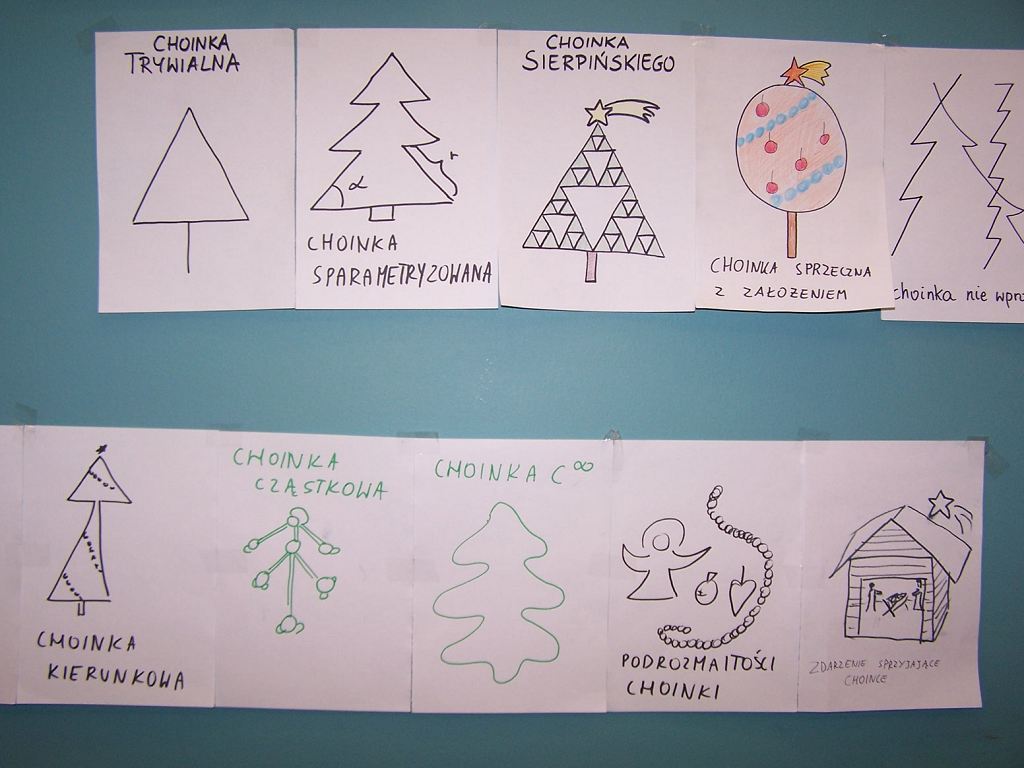 CHOINKA
TRYWIALNA
α
r
CHOINKA
SPARAMETRYZOWANA
CHOINKA
SIERPIŃSKIEGO
CHOINKA SPRZECZNA
Z ZAŁOŻENIEM
choinka nie wpro
CHOINKA
KIERUNKOWA
CHOINKA
CZĄSTKOWA
CHOINKA C∞
PODROZMAITOŚCI
CHOINKI
ZDARZENIE SPRZYJAJĄCE
CHOINCE